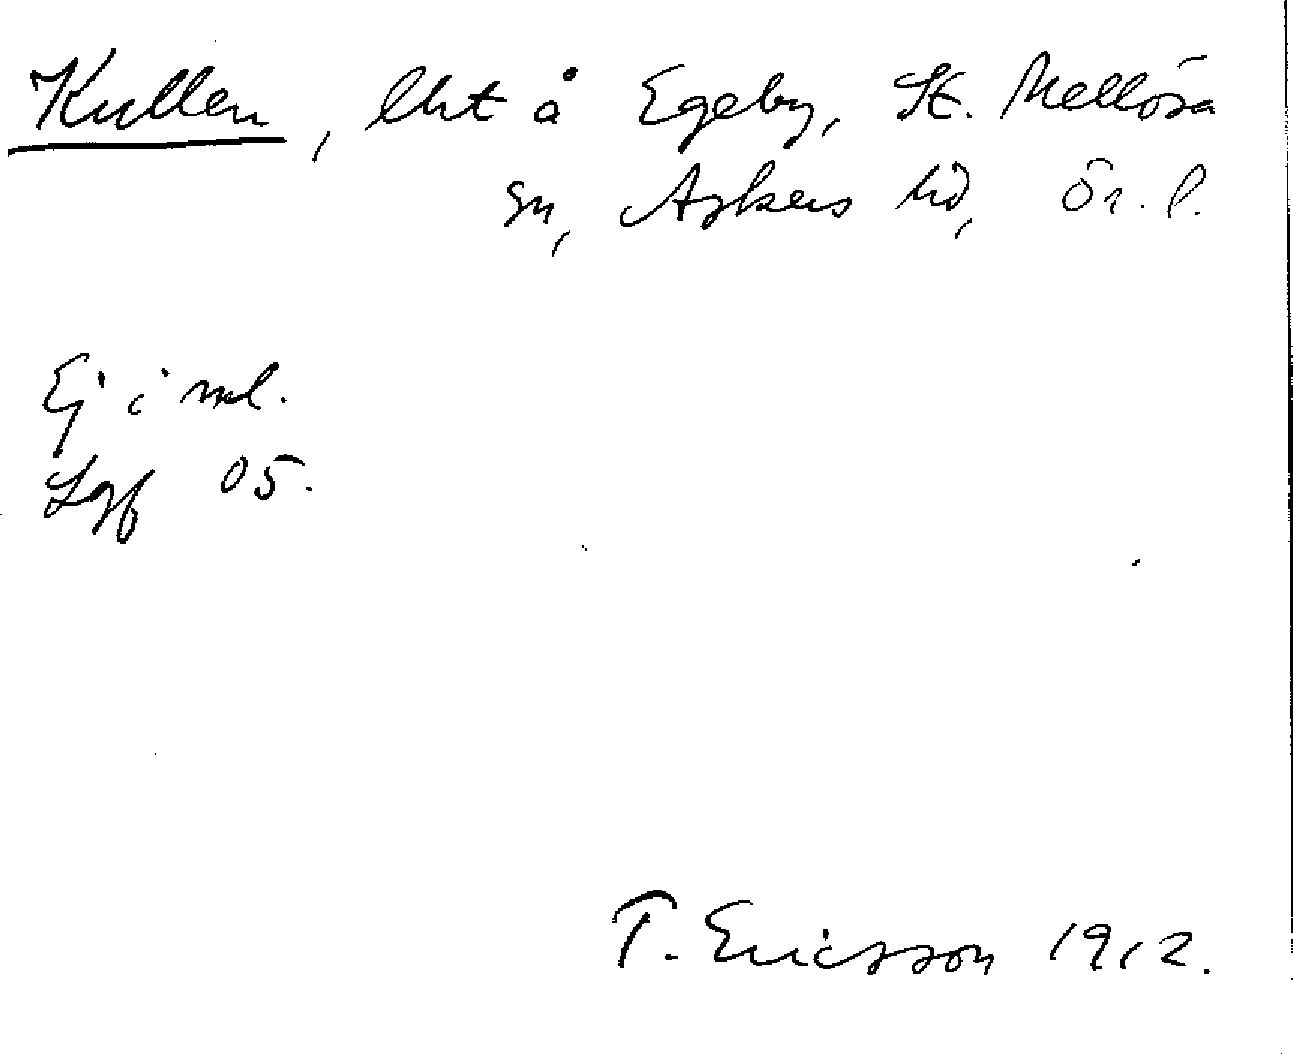 Kullen, lht å Egeby, St. Mellösa
sn, Askers hd, Ör. l.
Ej i ml.
Lgf 05.
T. Ericsson 1912.